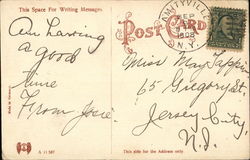 This Space For Writing Messages
Am having
a good
time
From Josie
A 11587
POST CARD
AMITYVILLE
SEP
1908
N.Y.
Miss May Tappin
65 Gregory St.
Jersey City
N.J.
This side for the Address only